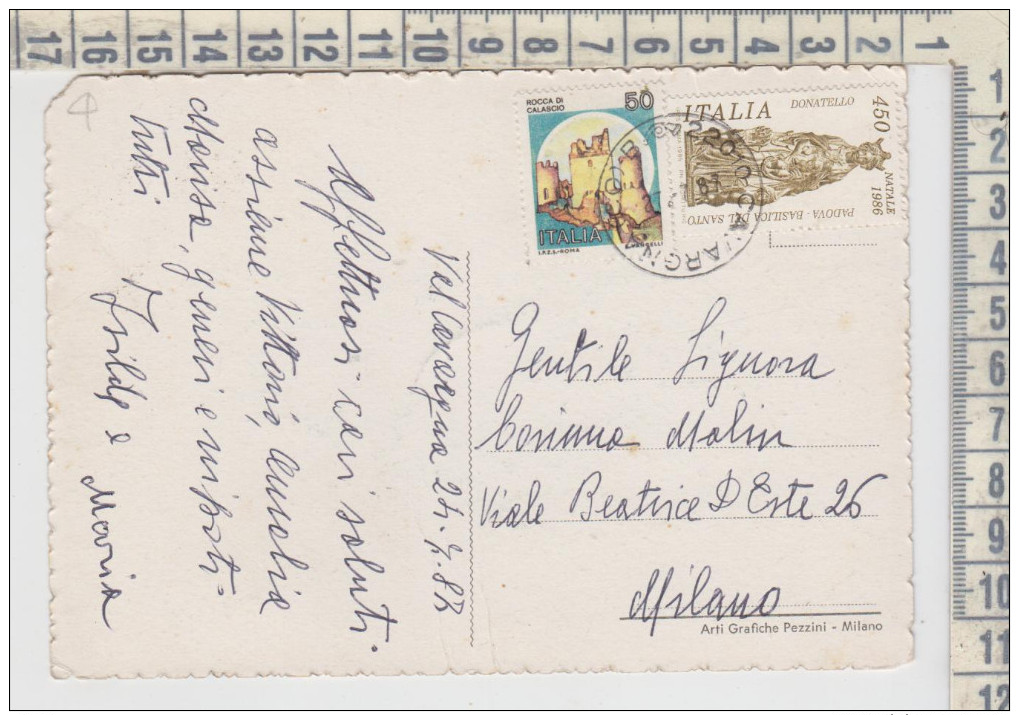 17 16 15 14 13 12 11 10 9 8 7 6 5 4 3 2 1
1
2
3
4
5
6
7
8
9
10
11
12
ROCCA DI
CALASCIO
50
ITALIA
I.P.Z.S.-ROMA
ITALIA
DONATELLO
450
NATALE
1986
PADOVA - BASILICA DEL SANTO
Val Cavargna 24.7.87
Affettuosi cari saluti.
assieme Vittorio, Amalia
Marisa, generi e nipoti.
tutti
Isilde e
Maria
Gentile Signora
Malin
Viale Beatrice D Este 26
Milano
Arti Grafiche Pezzini - Milano